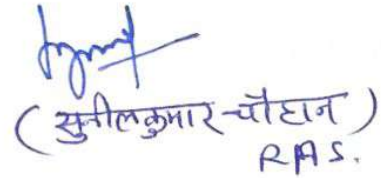 (सुनील कुमार चौहान)
RAS.